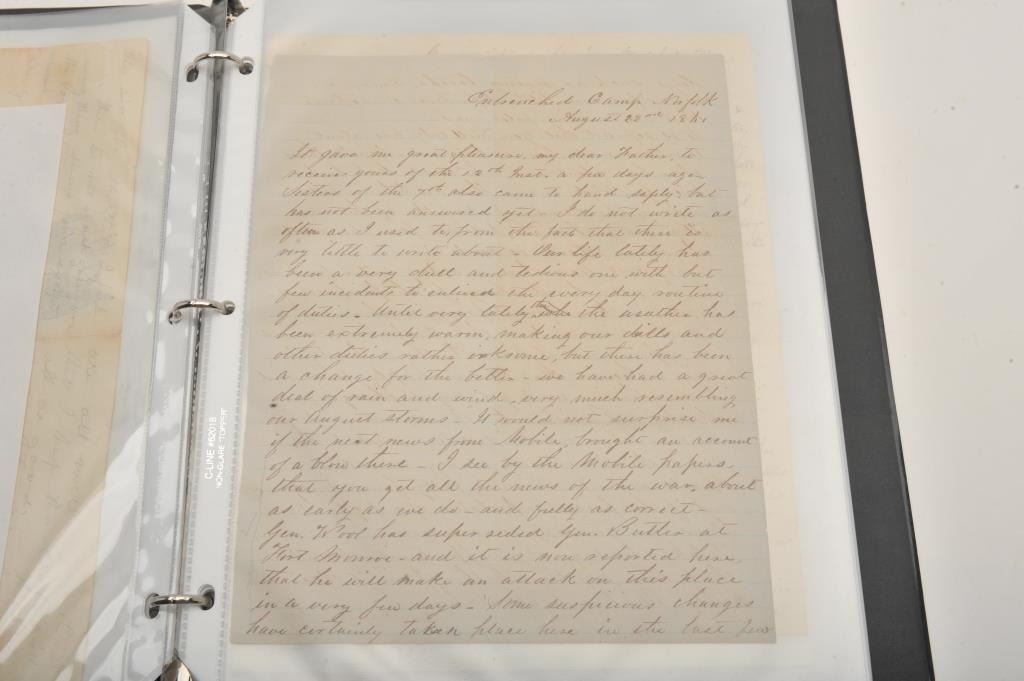 Entrenched Camp Norfolk
August 22nd 1861
It gave me great pleasure, my dear Father, to
receive yours of the 12th Inst. a few days ago -
Sisters of the 7th also came to hand safely, but
has not been answered yet - I do not write as
often as I used to, from the fact that there is
very little to write about - Our life lately has
been a very dull and tedious one, with but
few incidents to enliven the every day routine
of duties. Until very lately the weather has
been extremely warm, making our drills and
other duties rather irksome, but there has been
a change for the better - we have had a great
deal of rain and wind, very much resembling
our August storms - It would not surprise me
if the next news from Mobile, brought an account
of a blow there - I see by the Mobile papers,
that you get all the news of the war, about
as early as we do - and fully as correct -
Gen. Wool has superseded Gen. Butler at
Fort Monroe - and it is now reported here,
that he will make an attack on this place
in a very few days - Some suspicious changes
have certainly taken place here in the last few
C-LINE #62018
NON-GLARE "TOPPER"